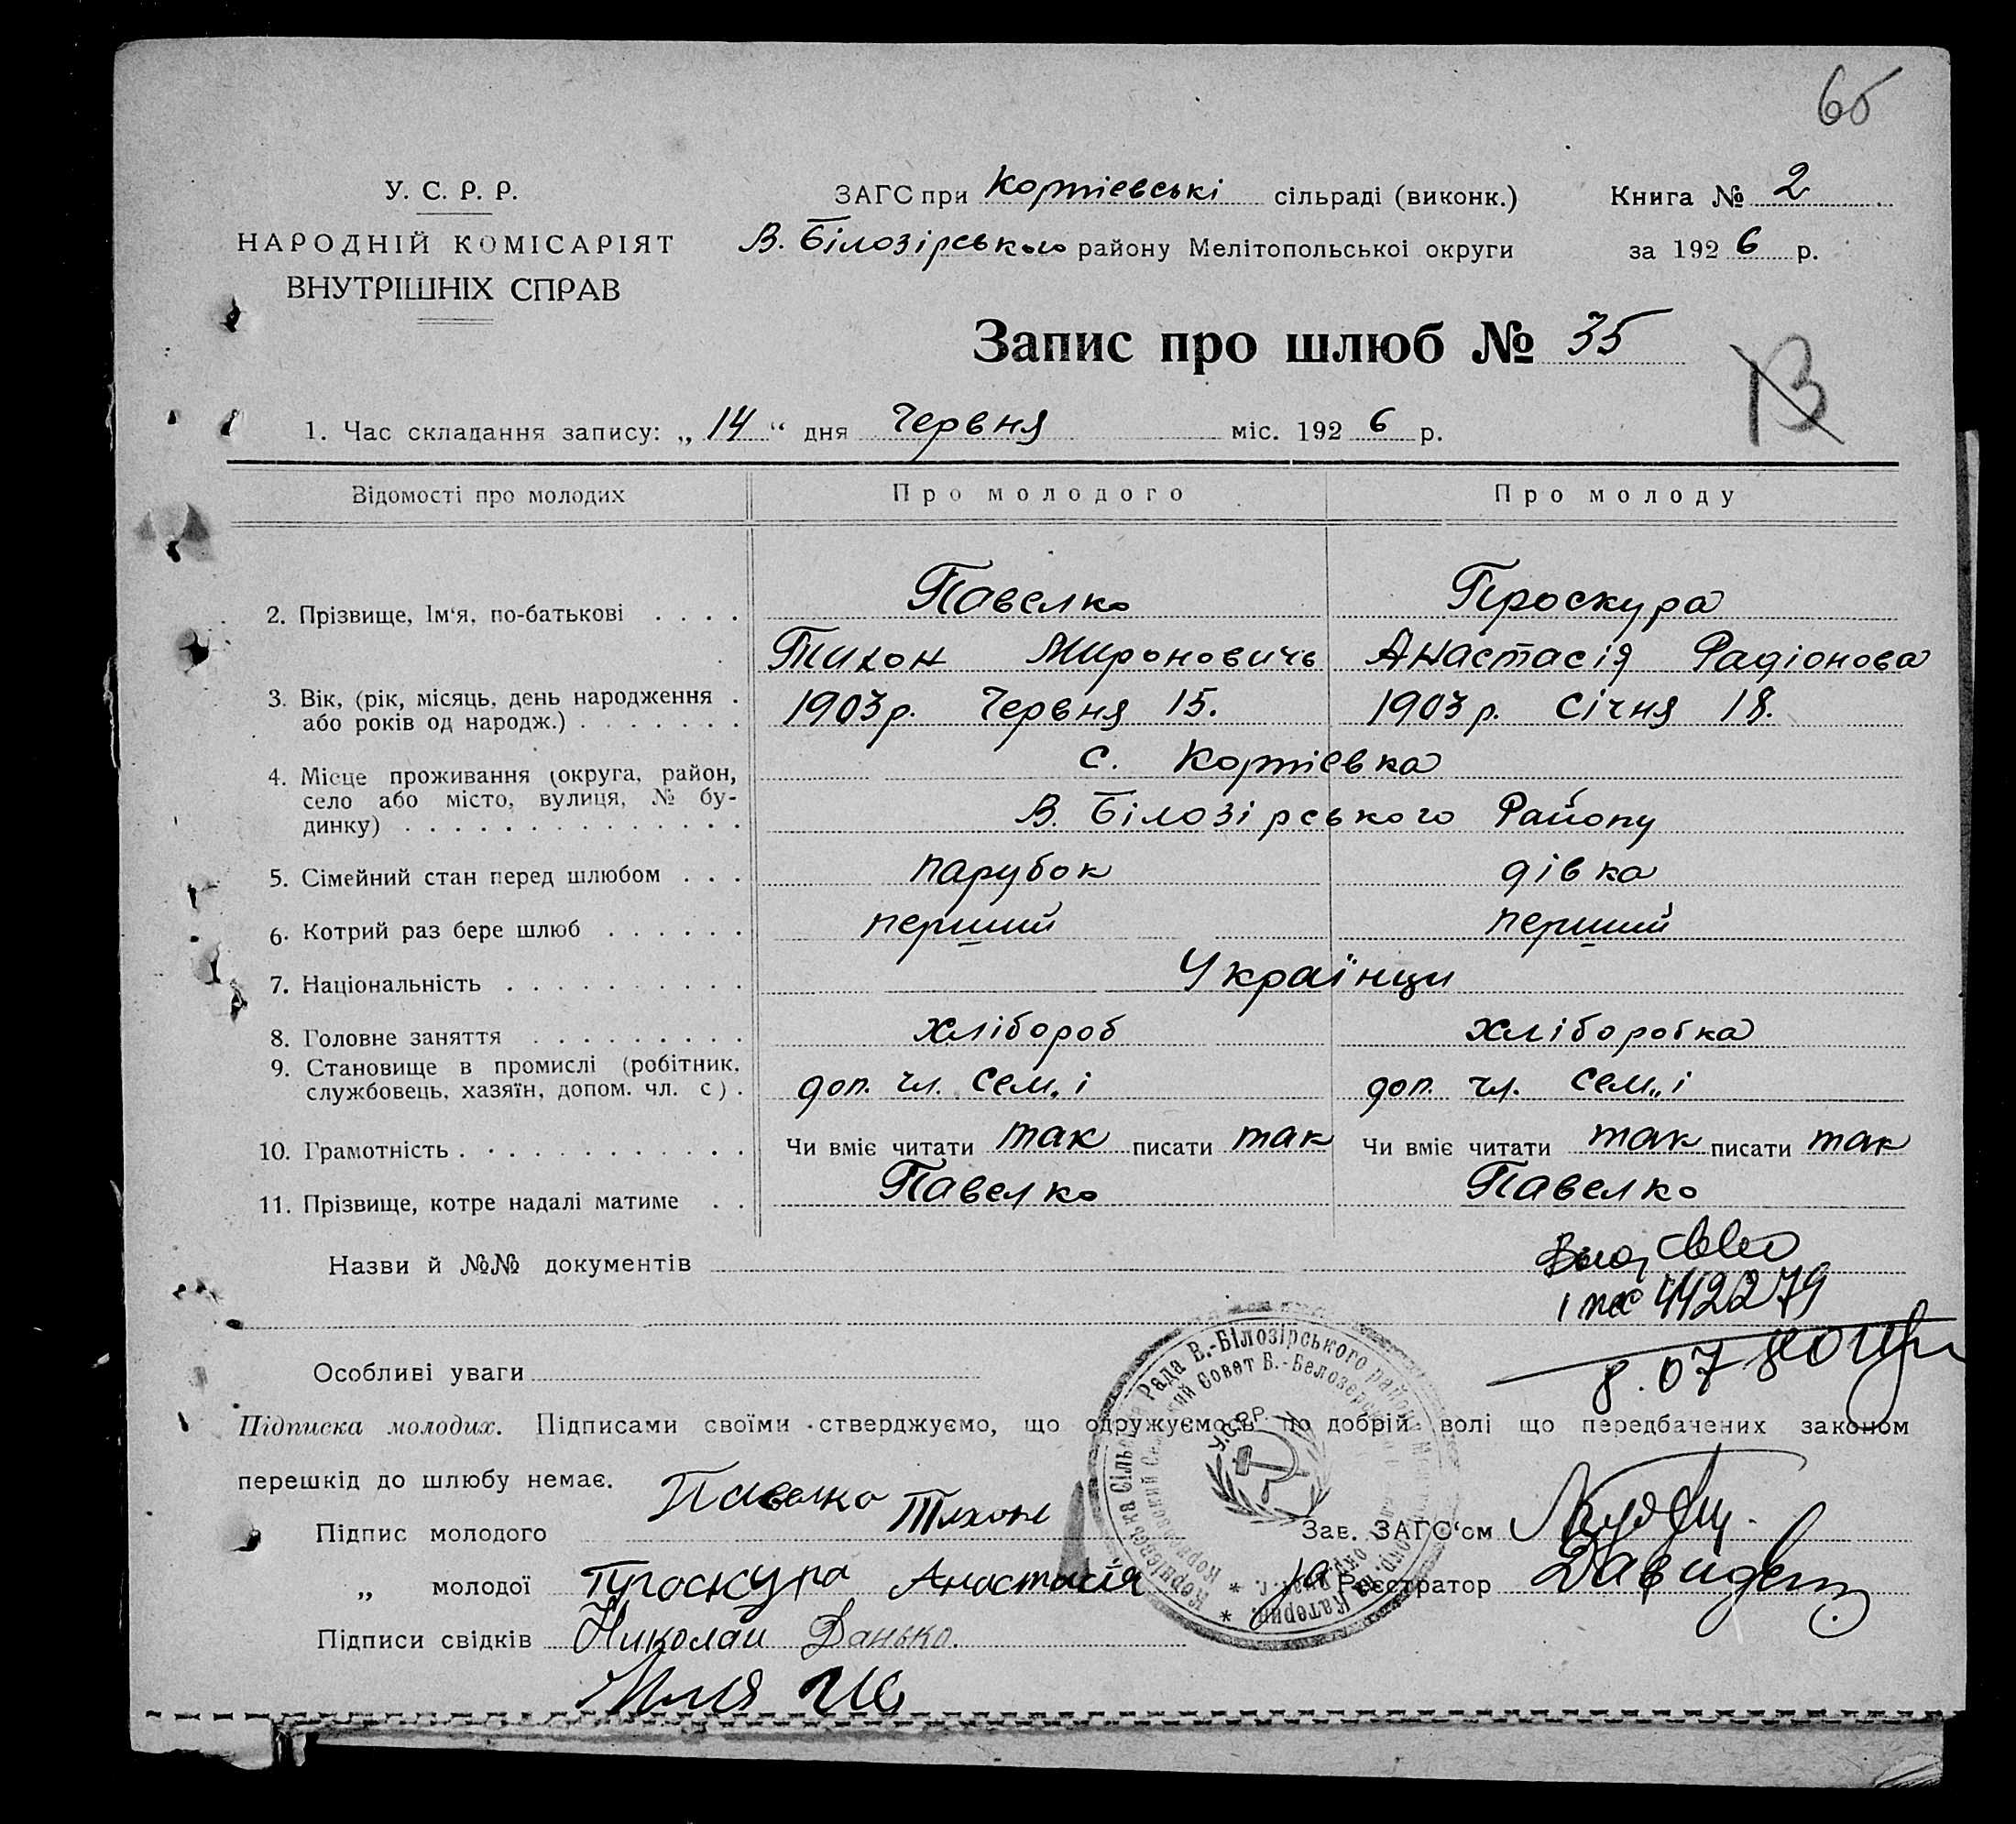 65
У. С. Р. Р.
НАРОДНІЙ КОМІСАРІЯТ
ВНУТРІШНІХ СПРАВ
ЗАГС при Кортіевські сільраді (виконк.)
В. Білозірського району Мелітопольської округи
Книга № 2
за 1926 р.
Запис про шлюб № 35
13
1. Час складання запису: „14“ дня Червня міс. 1926 р.
Відомості про молодих
Про молодого
Про молоду
2. Прізвище, Ім‘я, по-батькові
Павелко
Проскура
Тихон Мироновичь
Анастасія Радіонова
3. Вік, (рік, місяць, день народження
або років од народж.)
1903р. Червня 15.
1903р. Січня 18.
4. Місце проживання (округа, район,
село або місто, вулиця, № бу-
динку)
с. Кортієвка
В. Білозірського Району
5. Сімейний стан перед шлюбом
парубок
дівка
6. Котрий раз бере шлюб
перший
перший
7. Національність
Українци
8. Головне заняття
хлібороб
хліборобка
9. Становище в промислі (робітник,
службовець, хазяїн, допом. чл. с)
доп. чл. сем„і
доп. чл. сем„і
10. Грамотність
Чи вміє читати так писати так
Чи вміє читати так писати так
11. Прізвище, котре надалі матиме
Павелко
Павелко
Назви й №№ документів
442279
8.07
Особливі уваги
Підписка молодих. Підписами своїми стверджуємо, що одружуємось по добрій волі що передбачених законом
перешкід до шлюбу немає.
Підпис молодого Павелко Тихон
„ молодої Проскура Анастасія
Підписи свідків Николай Данько.
Зав. ЗАГС‘ом
за Реєстратор
Рада В.-Білозірського району
Совет В.-Белозерск
У.С.Р.Р.